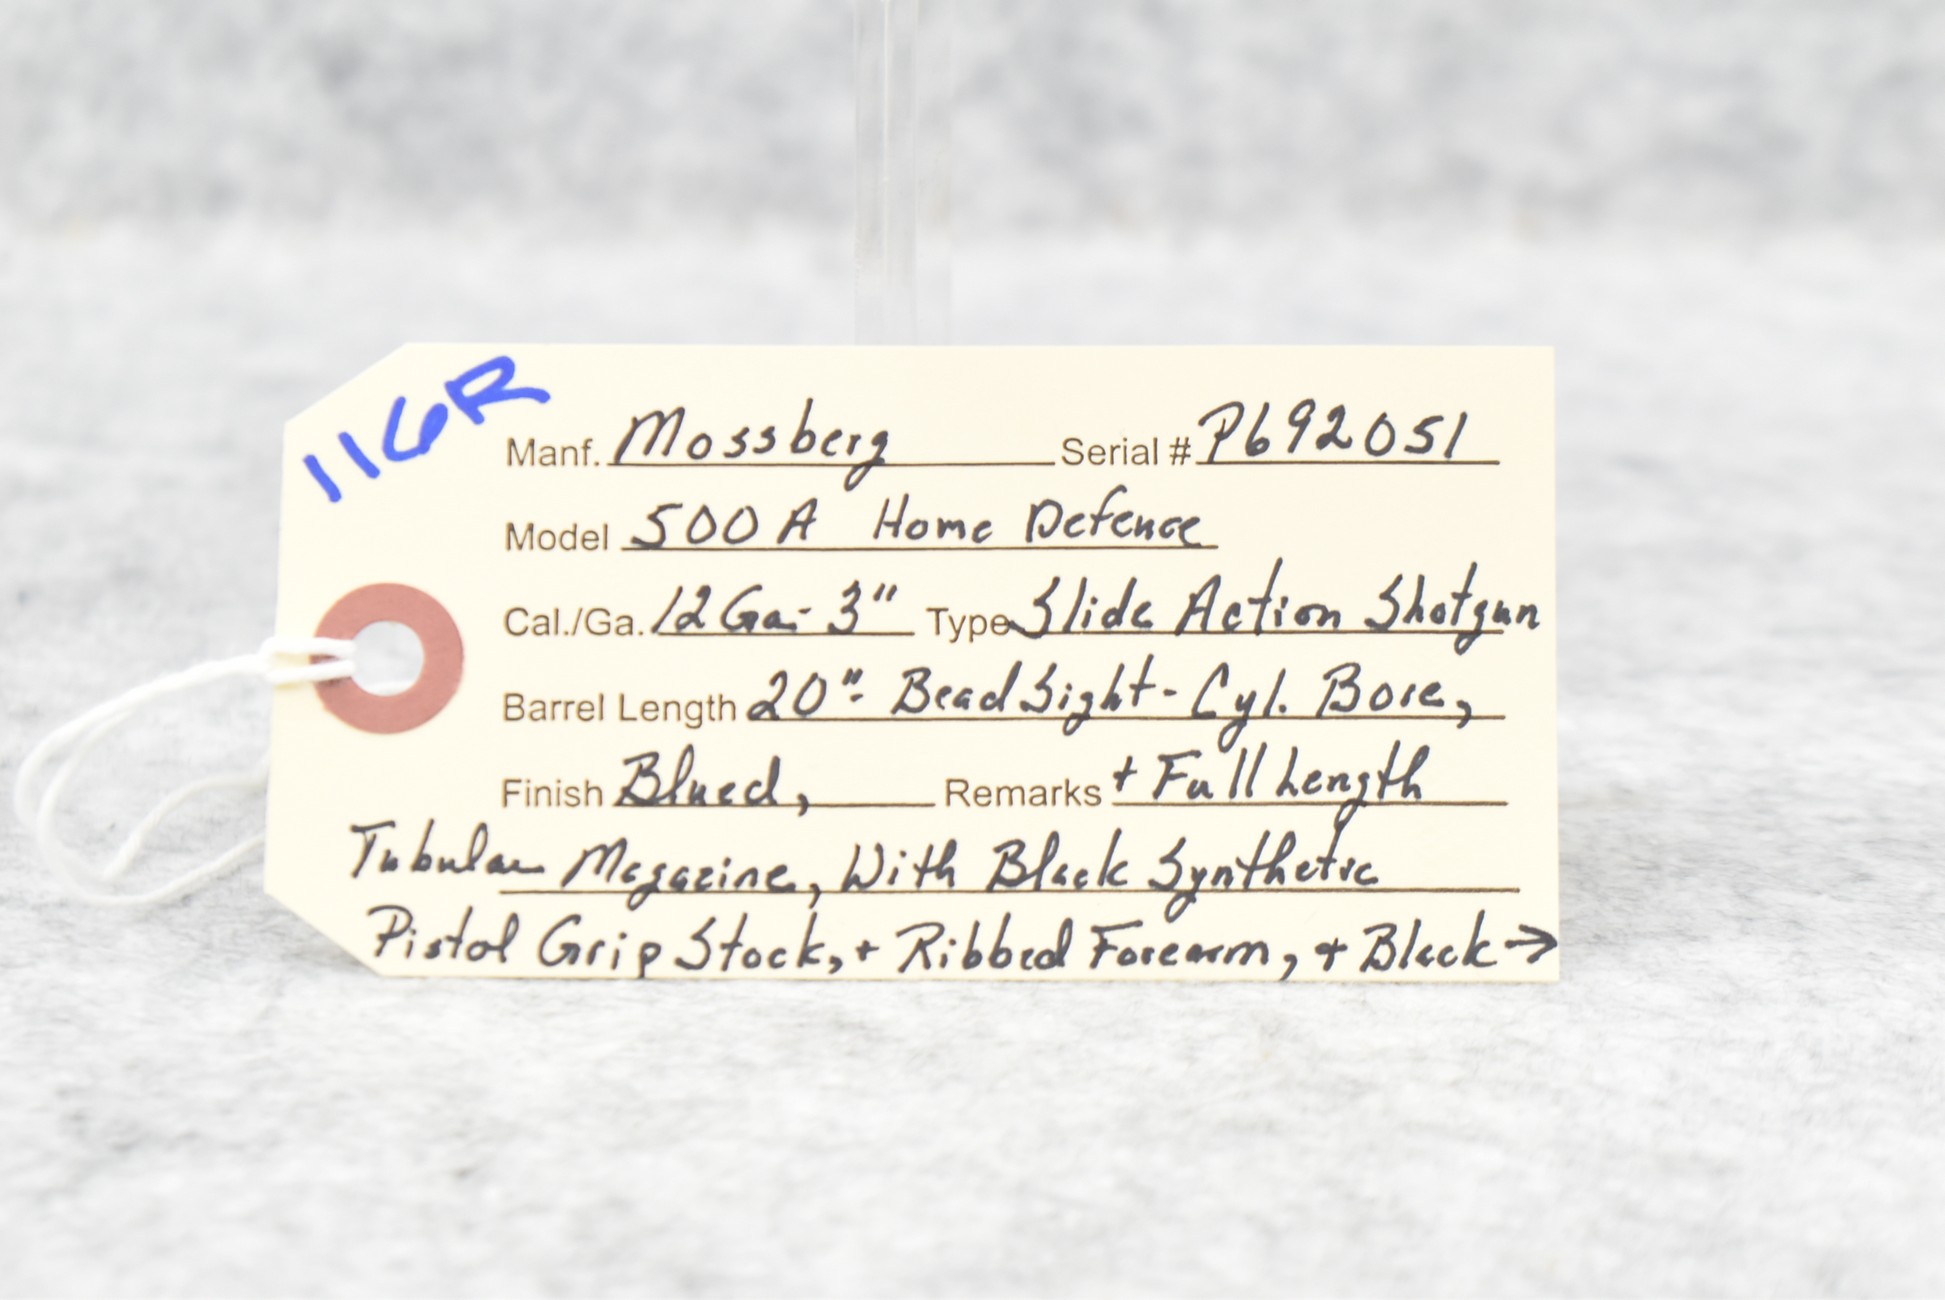 116R
Manf. Mossberg Serial # P692051
Model 500A Home Defence
Cal./Ga. 12 Ga- 3" Type Slide Action Shotgun
Barrel Length 20"- Bead Sight- Cyl. Bore,
Finish Blued, Remarks + Full Length
Tubular Magazine, With Black Synthetic
Pistol Grip Stock, + Ribbed Forearm, + Black →